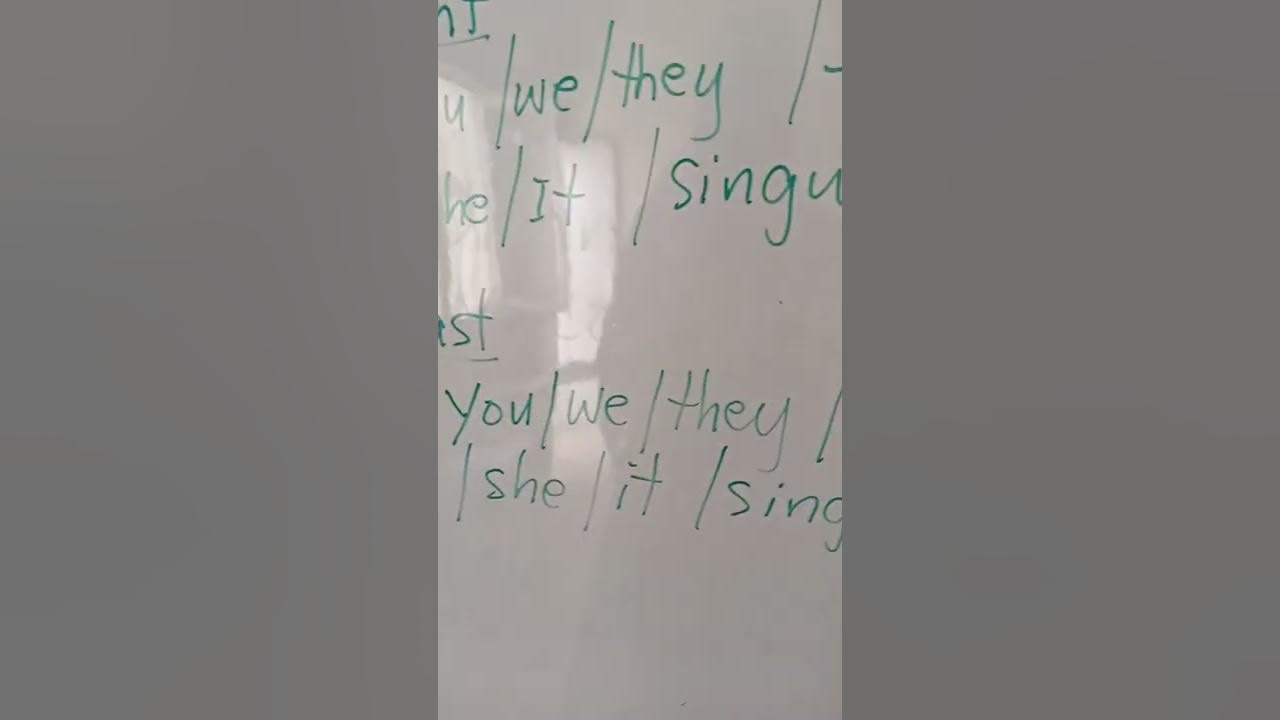 /we/they /
he/It /singu
You/we/they /
/she/it /sing